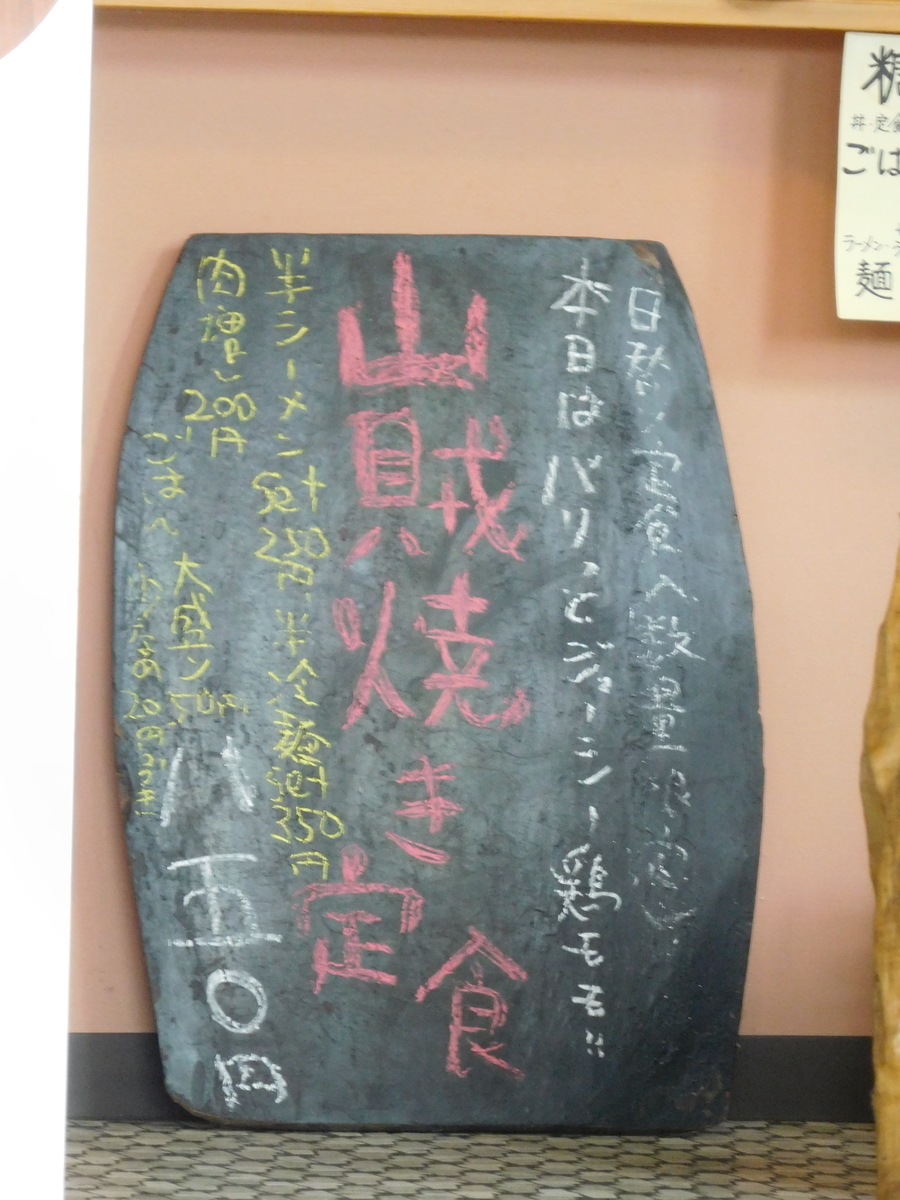 日替り定食(数量限定)
本日はパリッとジューシー鶏モモ!!
山賊焼き定食
半ラーメンset250円 半冷麺set350円
肉増し200円
ごはん 大盛り50円
少なめ20円引き
八五〇円
丼・定
ごは
ラーメン・
麺